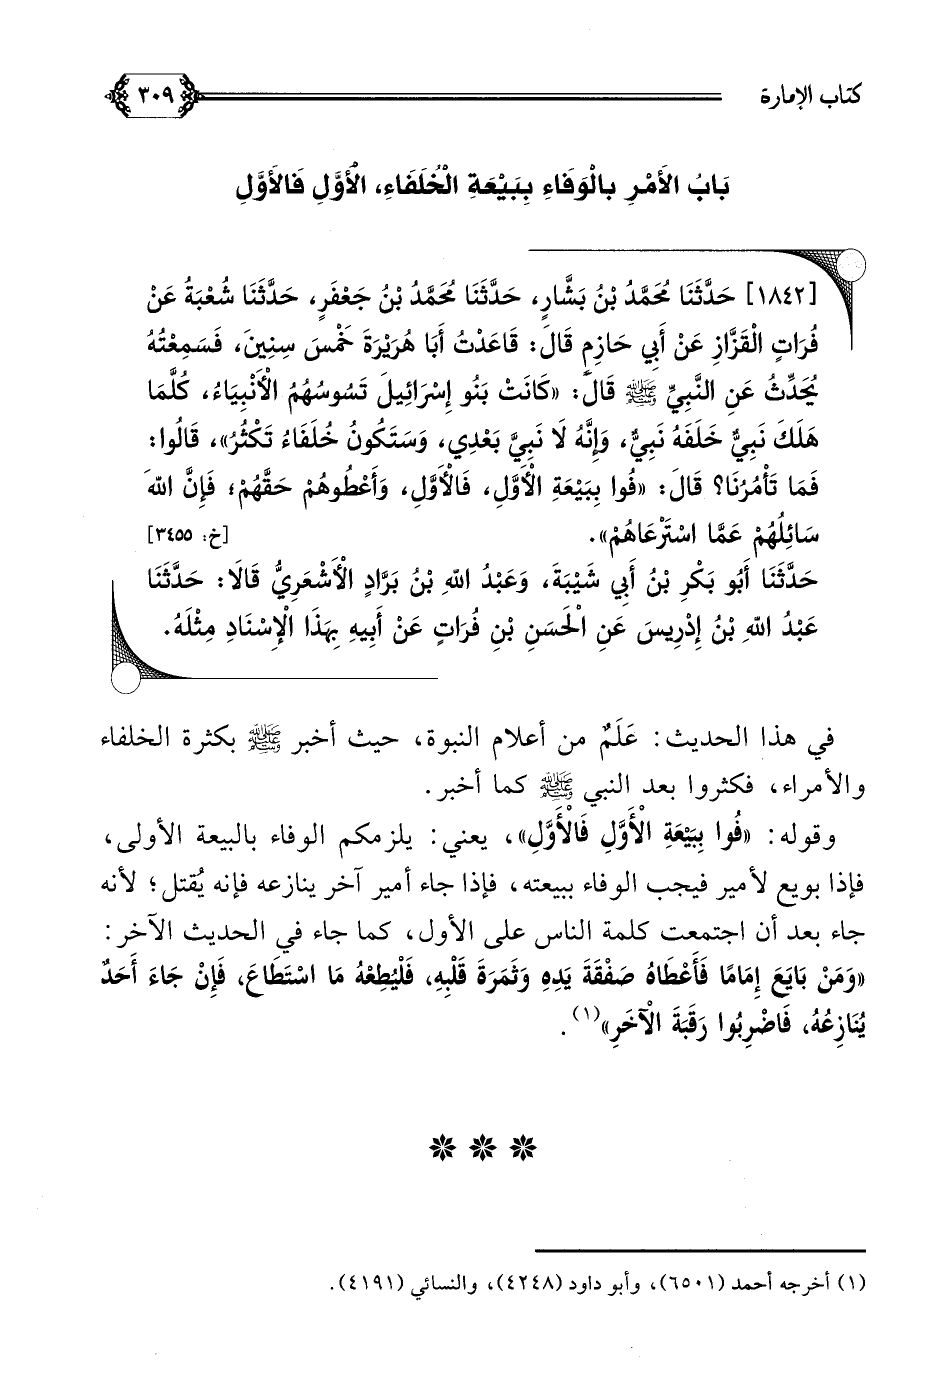 كتاب الإمارة ٣٠٩
بَابُ الْأَمْرِ بِالْوَفَاءِ بِبَيْعَةِ الْخُلَفَاءِ، الْأَوَّلِ فَالْأَوَّلِ
[١٨٤٢] حَدَّثَنَا مُحَمَّدُ بْنُ بَشَّارٍ، حَدَّثَنَا مُحَمَّدُ بْنُ جَعْفَرٍ، حَدَّثَنَا شُعْبَةُ عَنْ
فُرَاتٍ الْقَزَّازِ عَنْ أَبِي حَازِمٍ قَالَ: قَاعَدْتُ أَبَا هُرَيْرَةَ خَمْسَ سِنِينَ، فَسَمِعْتُهُ
يُحَدِّثُ عَنِ النَّبِيِّ ﷺ قَالَ: «كَانَتْ بَنُو إِسْرَائِيلَ تَسُوسُهُمُ الْأَنْبِيَاءُ، كُلَّمَا
هَلَكَ نَبِيٌّ خَلَفَهُ نَبِيٌّ، وَإِنَّهُ لَا نَبِيَّ بَعْدِي، وَسَتَكُونُ خُلَفَاءُ تَكْثُرُ»، قَالُوا:
فَمَا تَأْمُرُنَا؟ قَالَ: «فُوا بِبَيْعَةِ الْأَوَّلِ، فَالْأَوَّلِ، وَأَعْطُوهُمْ حَقَّهُمْ؛ فَإِنَّ اللهَ
سَائِلُهُمْ عَمَّا اسْتَرْعَاهُمْ». [خ: ٣٤٥٥]
حَدَّثَنَا أَبُو بَكْرِ بْنُ أَبِي شَيْبَةَ، وَعَبْدُ اللهِ بْنُ بَرَّادٍ الْأَشْعَرِيُّ قَالَا: حَدَّثَنَا
عَبْدُ اللهِ بْنُ إِدْرِيسَ عَنِ الْحَسَنِ بْنِ فُرَاتٍ عَنْ أَبِيهِ بِهَذَا الْإِسْنَادِ مِثْلَهُ.
في هذا الحديث: عَلَمٌ من أعلام النبوة، حيث أخبر ﷺ بكثرة الخلفاء
والأمراء، فكثروا بعد النبي ﷺ كما أخبر.
وقوله: «فُوا بِبَيْعَةِ الْأَوَّلِ فَالْأَوَّلِ»، يعني: يلزمكم الوفاء بالبيعة الأولى،
فإذا بويع لأمير فيجب الوفاء ببيعته، فإذا جاء أمير آخر ينازعه فإنه يُقتل؛ لأنه
جاء بعد أن اجتمعت كلمة الناس على الأول، كما جاء في الحديث الآخر:
«وَمَنْ بَايَعَ إِمَامًا فَأَعْطَاهُ صَفْقَةَ يَدِهِ وَثَمَرَةَ قَلْبِهِ، فَلْيُطِعْهُ مَا اسْتَطَاعَ، فَإِنْ جَاءَ أَحَدٌ
يُنَازِعُهُ، فَاضْرِبُوا رَقَبَةَ الْآخَرِ»(١).
(١) أخرجه أحمد (٦٥٠١)، وأبو داود (٤٢٤٨)، والنسائي (٤١٩١).